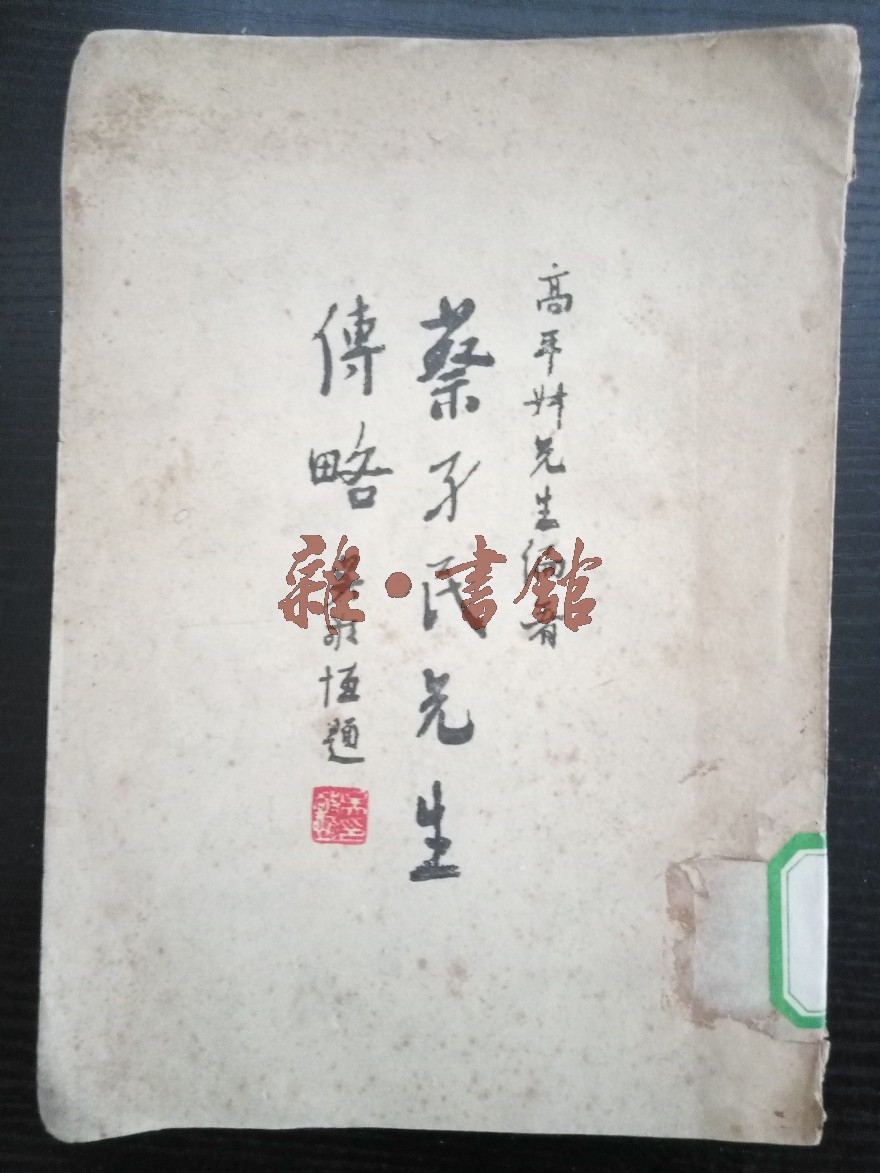 高平叔先生編著
蔡孑民先生
傳略
吳敬恆題
雜·書館